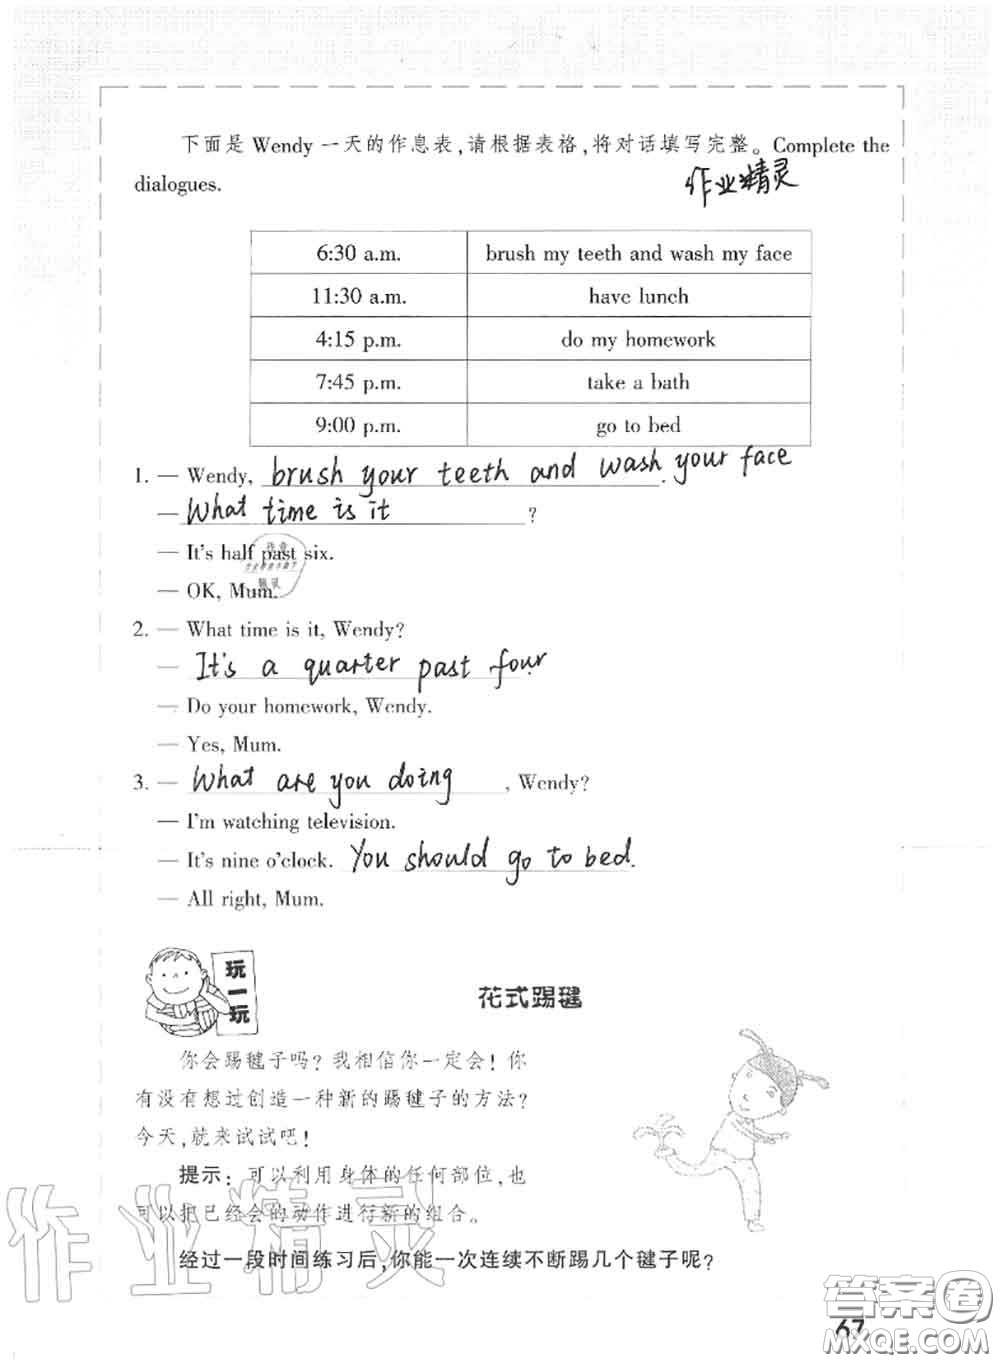 下面是 Wendy 一天的作息表,请根据表格,将对话填写完整。Complete the
dialogues.
作业精灵
6:30 a.m. brush my teeth and wash my face
11:30 a.m. have lunch
4:15 p.m. do my homework
7:45 p.m. take a bath
9:00 p.m. go to bed
1. — Wendy, brush your teeth and wash your face.
— What time is it ?
— It's half past six.
— OK, Mum.
2. — What time is it, Wendy?
— It's a quarter past four.
— Do your homework, Wendy.
— Yes, Mum.
3. — What are you doing , Wendy?
— I'm watching television.
— It's nine o'clock. You should go to bed.
— All right, Mum.
玩一玩
花式踢毽
你会踢毽子吗? 我相信你一定会! 你
有没有想过创造一种新的踢毽子的方法?
今天,就来试试吧!
提示: 可以利用身体的任何部位,也
可以把已经会的动作进行新的组合。
经过一段时间练习后,你能一次连续不断踢几个毽子呢?
作业精灵
答案圈
MXQE.COM
67